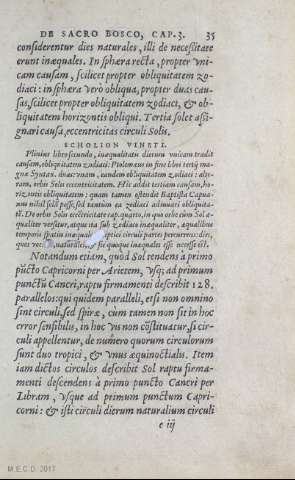 DE SACRO BOSCO, CAP. 3. 35
considerentur dies naturales, illi de necessitate
erunt inæquales. In sphæra recta, propter vni-
cam causam, scilicet propter obliquitatem zo-
diaci: in sphæra verò obliqua, propter duas cau-
sas, scilicet propter obliquitatem zodiaci, & ob-
liquitatem horizontis obliqui. Tertia solet assi-
gnari causa, eccentricitas circuli Solis.
SCHOLION VINETI.
Plinius libro secundo, inæqualitatis dierum vnicam tradit
causam, obliquitatem zodiaci: Ptolemæus in fine libri tertij ma-
gnæ Syntax. duas: vnam, eandem obliquitatem zodiaci: alte-
ram, orbis Solis eccentricitatem. His addit tertiam causam, ho-
rizontis obliquitatem: quam tamen ostendit Baptista Capua-
nus nihil posse, sed tantùm ea zodiaci adiuuari obliquita-
tē. De orbis Solis ecctricitate cap. quarto, in quo orbe cum Sol æ-
qualiter versetur, atque ita sub zodiaco inæqualiter, æqualibus
temporis spatiis inæquales ecliptici circuli partes percurrens: dies,
quos vocāt naturales, eo fit quoque inæquales esse necesse est.
Notandum etiam, quòd Sol tendens à primo
pūcto Capricorni per Arietem, vsq; ad primum
punctū Cancri, raptu firmamenti describit 182.
parallelos: qui quidem paralleli, etsi non omnino
sint circuli, sed spiræ, cùm tamen non sit in hoc
error sensibilis, in hoc vis non cōstituatur, si cir-
culi appellentur, de numero quorum circulorum
sunt duo tropici, & vnus æquinoctialis. Item
iam dictos circulos describit Sol raptu firma-
menti descendens à primo puncto Cancri per
Libram, vsque ad primum punctum Capri-
corni: & isti circuli dierum naturalium circuli
e iij
M.E.C.D. 2017